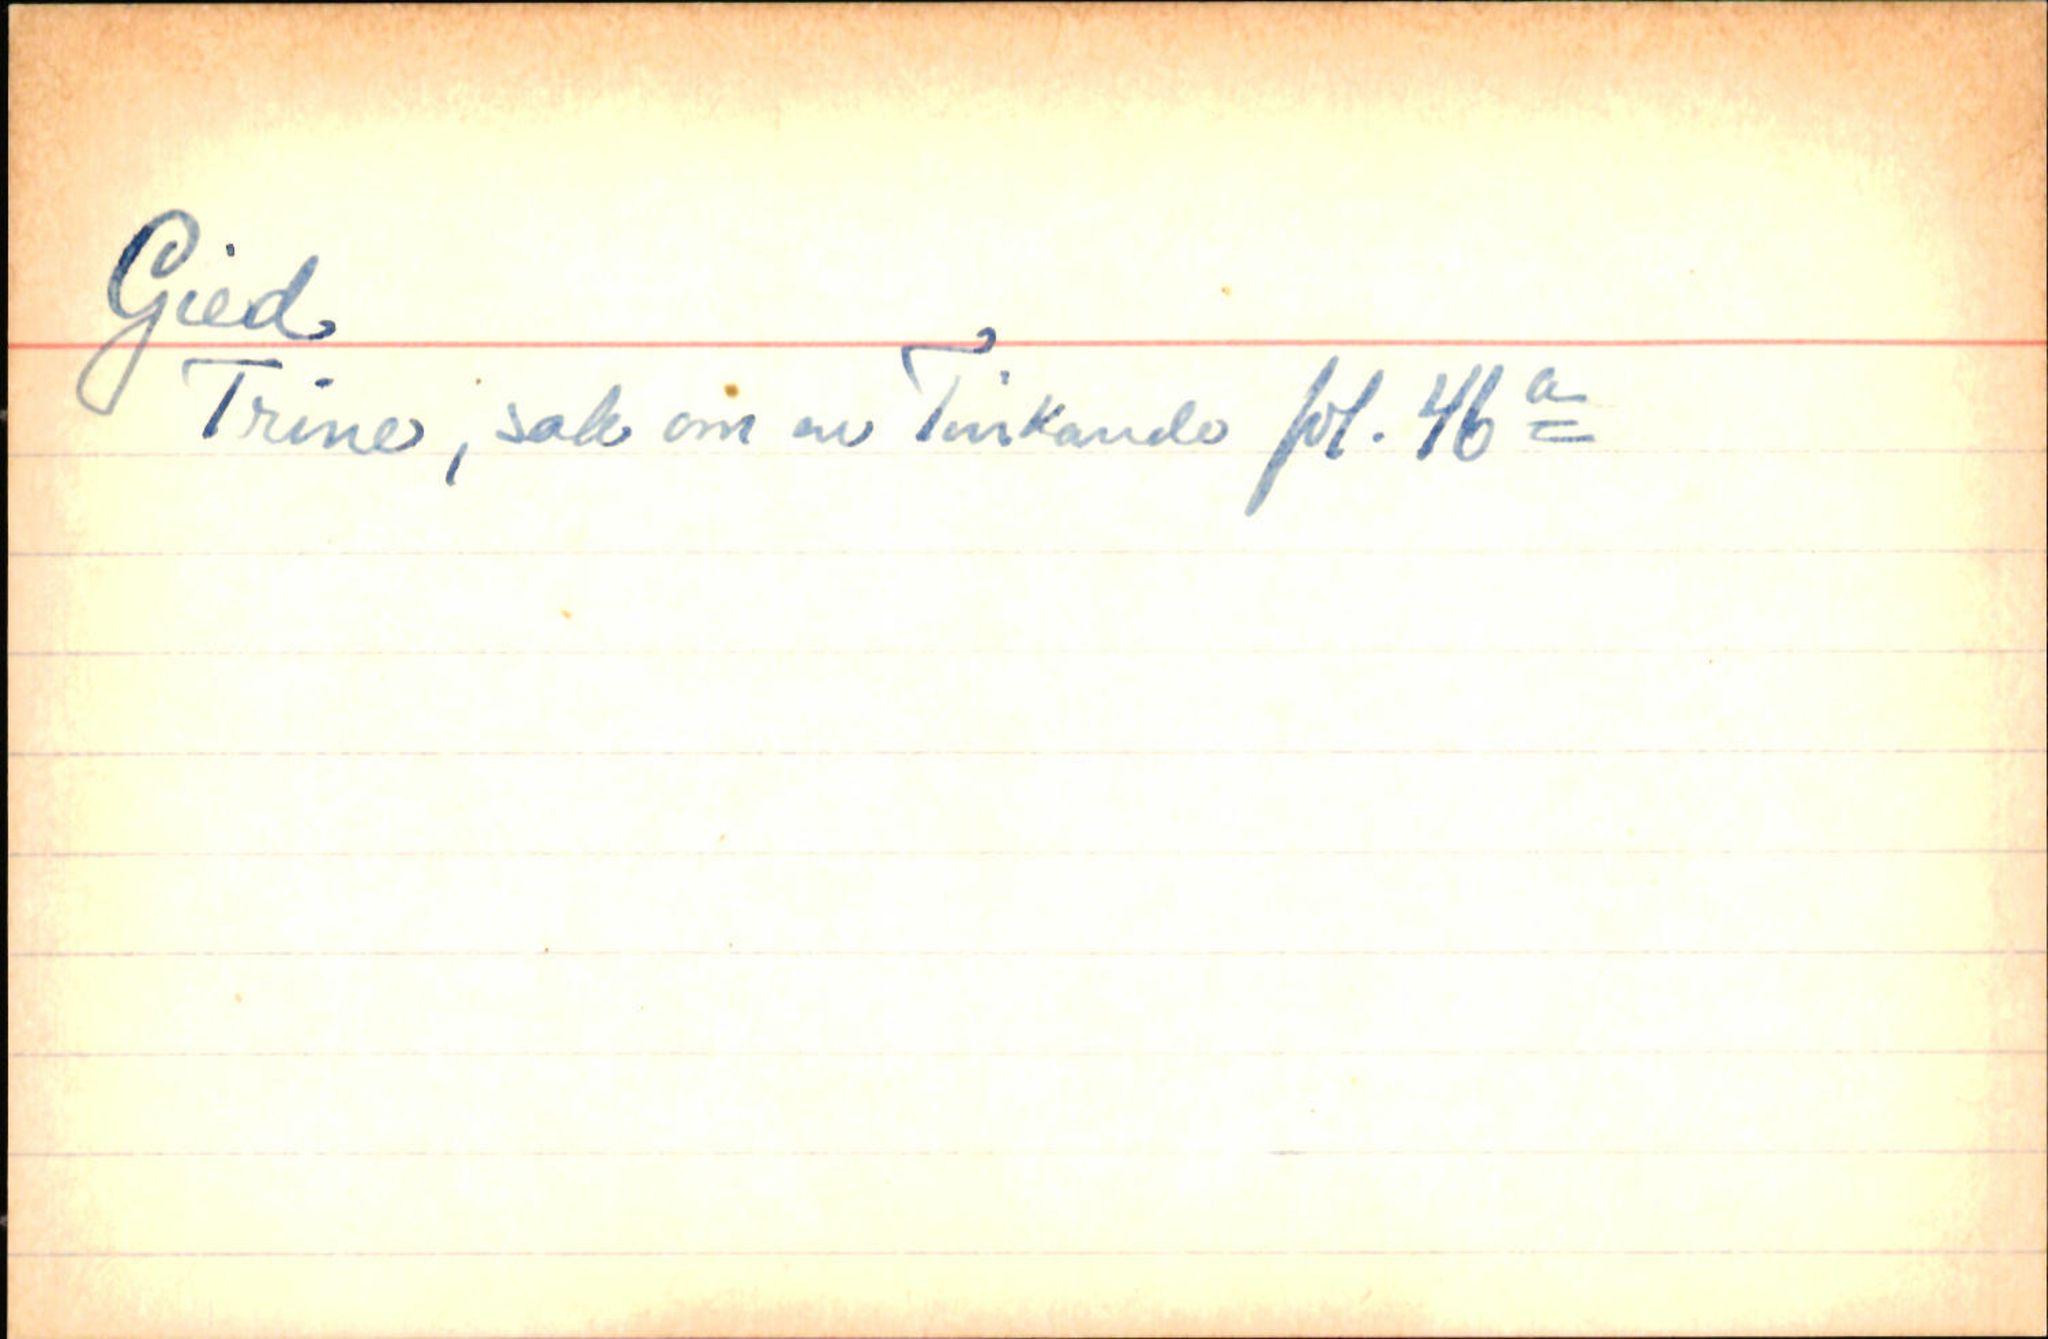 Gied
Trine, sak om en Tinkande fol. 46 a